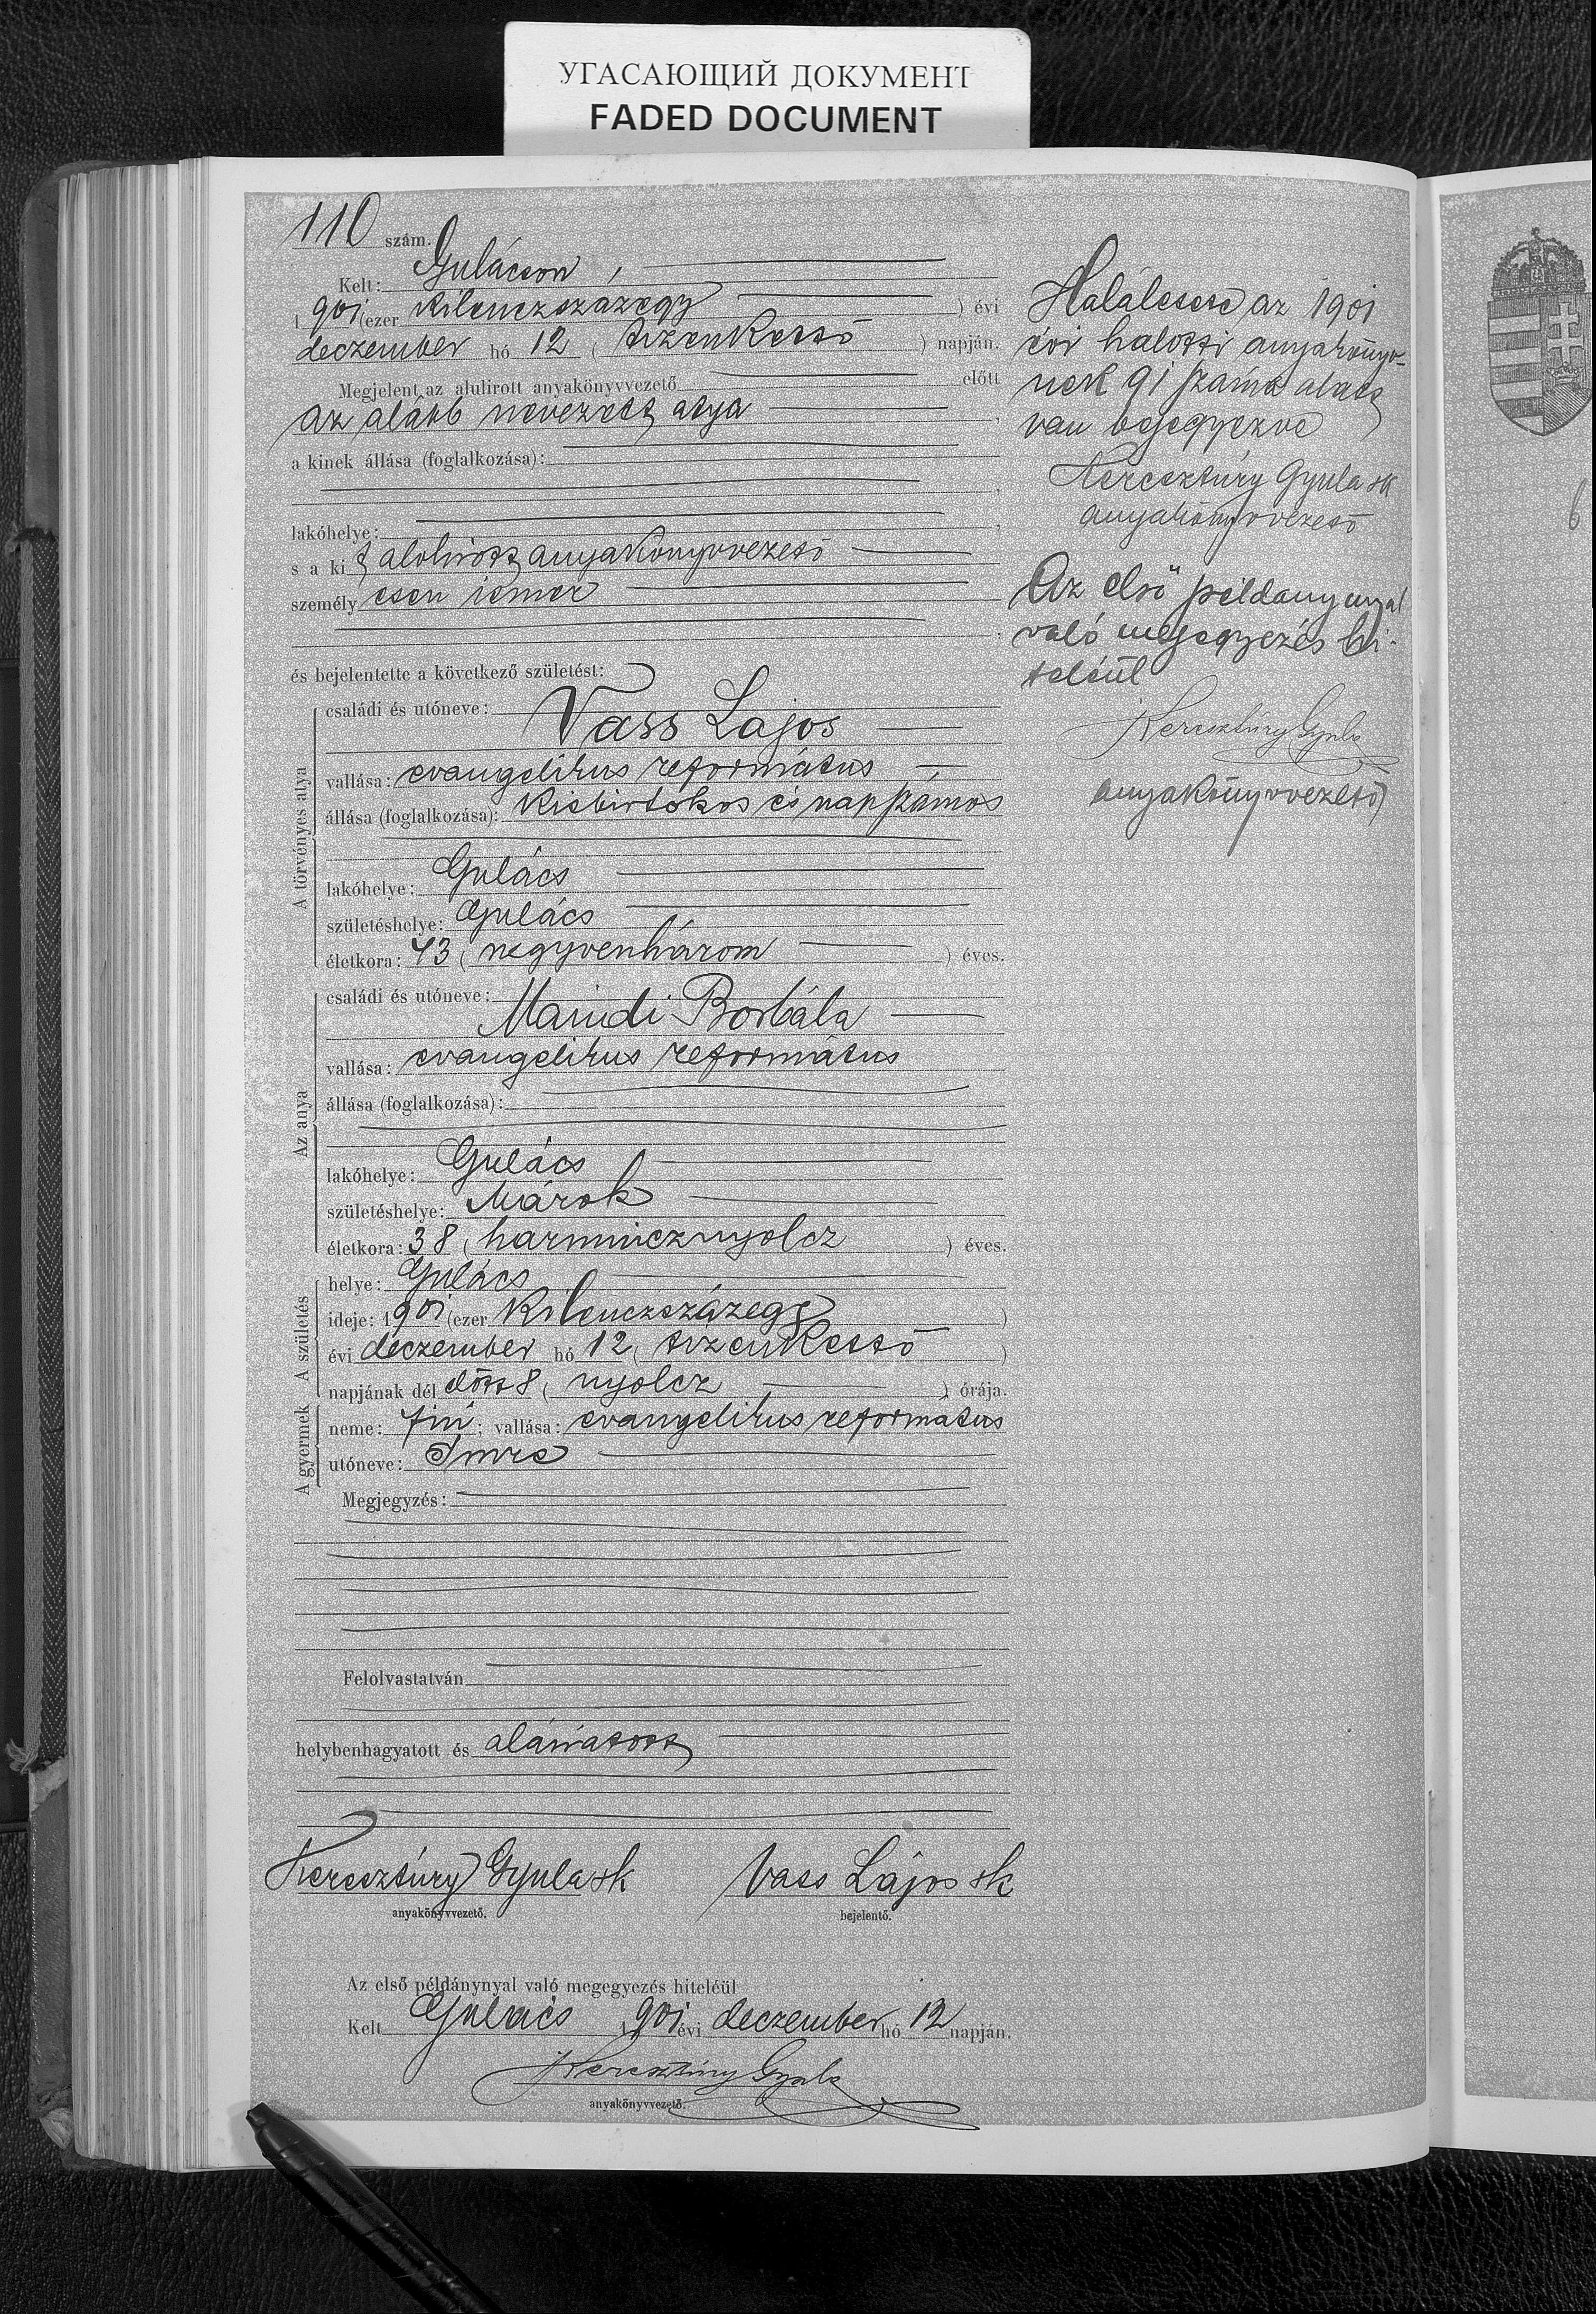 УГАСАЮЩИЙ ДОКУМЕНТ
FADED DOCUMENT
110 szám.
Kelt: Gulácson,
1901 (ezer kilenczszázegy ) évi
deczember hó 12 ( tizenkettő ) napján.
Megjelent az alulirott anyakönyvvezető előtt
az alább nevezett atya
a kinek állása (foglalkozása):
lakóhelye:
s a ki t alolirott anyakönyvvezető
személy esen ismer
és bejelentette a következő születést:
A törvényes atya
családi és utóneve:
Vass Lajos
vallása: evangelikus református
állása (foglalkozása): kisbirtokos és napszámos
lakóhelye: Gulács
születéshelye: Gulács
életkora: 43 ( negyvenhárom ) éves.
Az anya
családi és utóneve:
Borbála
vallása: evangelikus református
állása (foglalkozása):
lakóhelye: Gulács
születéshelye: Márok
életkora: 38 ( harmincznyolcz ) éves.
A születés
helye: Gulács
ideje: 1901 (ezer kilenczszázegy )
évi deczember hó 12 ( tizenkettő )
napjának dél előtt 8 ( nyolcz ) órája.
A gyermek
neme: fiú; vallása: evangelikus református
utóneve: Imre
Megjegyzés:
Felolvastatván
helybenhagyatott és aláiratott
Keresztúry Gyula sk Vass Lajos sk
anyakönyvvezető. bejelentő.
Az első példánynyal való megegyezés hiteléül
Kelt Gulács 1901 évi deczember hó 12 napján.
Keresztúry Gyula
anyakönyvvezető.
Halálesete az 1901
évi halotti anyakönyv-
nek 91 száma alatt
van bejegyezve
Keresztúry Gyula sk
anyakönyvvezető
Az első példánynyal
való megegyezés hi-
teléül
Keresztúry Gyula
anyakönyvvezető